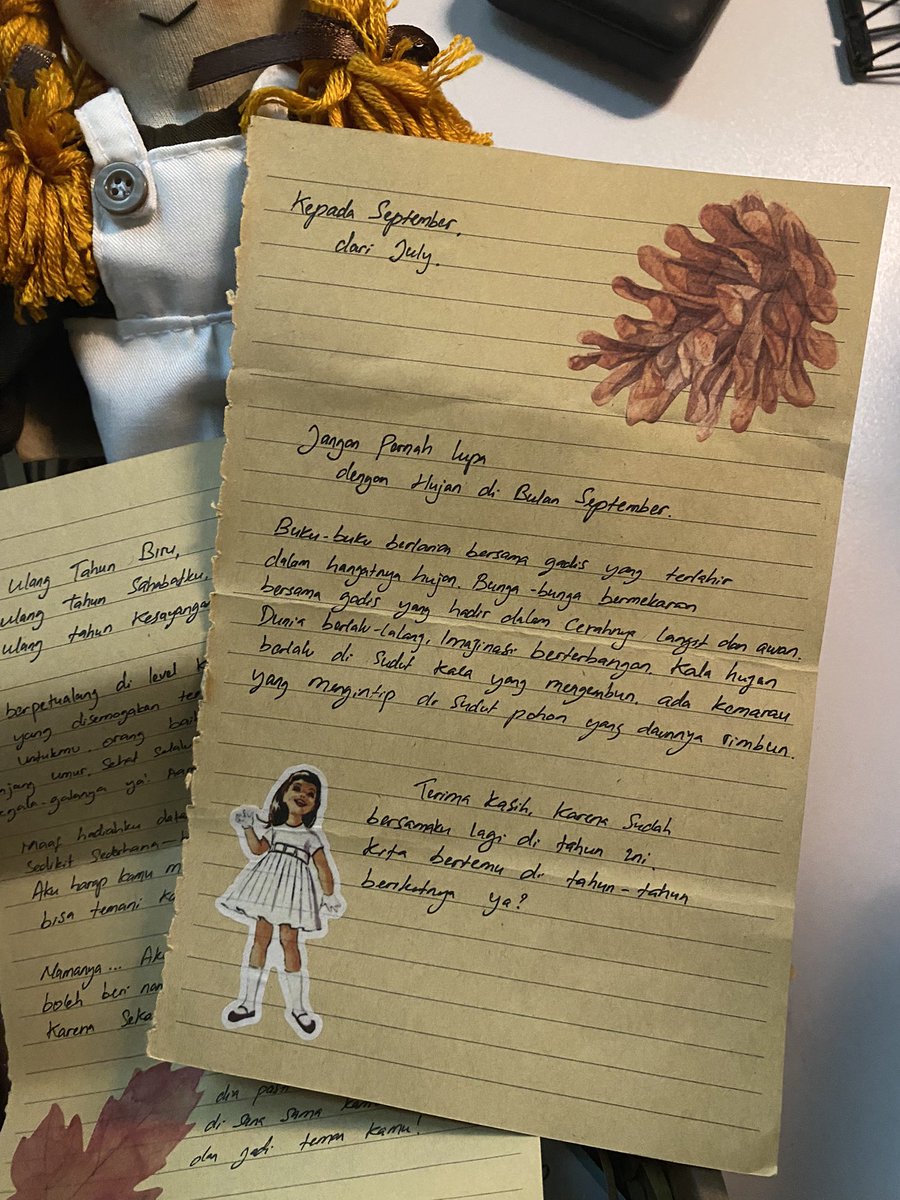 Kepada September,
dari July.
Jangan Pernah lupa
dengan Hujan di Bulan September.
Buku-buku berlarian bersama gadis yang terlahir
dalam hangatnya hujan. Bunga-bunga bermekaran
bersama gadis yang hadir dalam Cerahnya Langit dan awan.
Dunia berlalu-lalang. Imajinasi berterbangan. Kala hujan
berlalu di Sudut Kala yang mengembun, ada Kemarau
yang mengintip di Sudut pohon yang daunnya rimbun.
Terima Kasih, Karena Sudah
bersamaku lagi di tahun ini
Kita bertemu di tahun-tahun
berikutnya ya?
Ulang Tahun Biru,
ulang Tahun Sahabatku,
ulang tahun Kesayangan
berpetualang di level
yang disemogakan
Untukmu. orang
umur. Sehat Selalu
ya!
Maaf hadiahku
Sedikit Sederhana
Aku harap kamu
bisa temani
Namanya...
boleh beri
Karena
dia
di sana sama
dan jadi teman kamu!